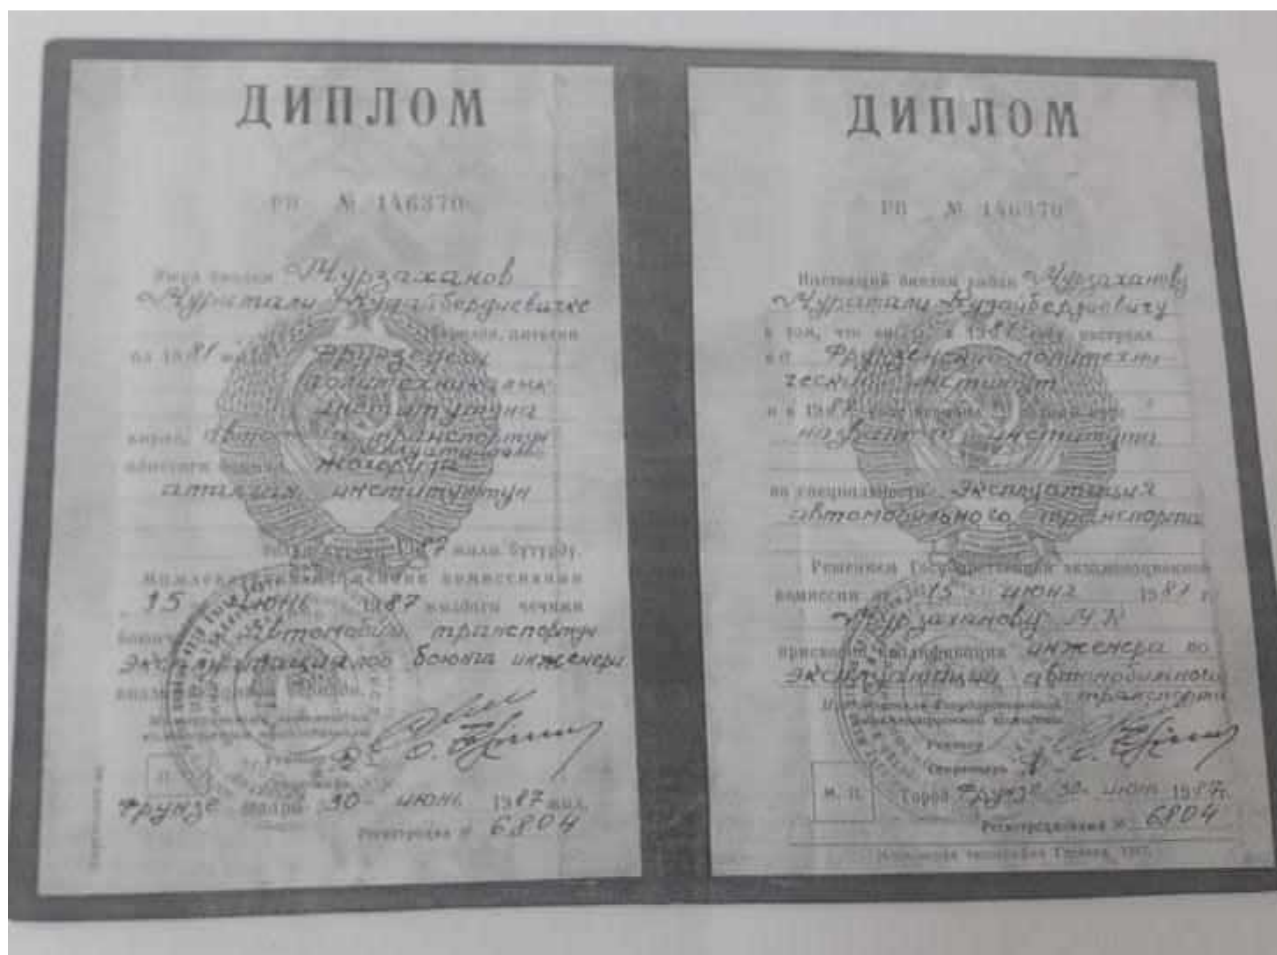 ДИПЛОМ
РВ № 146370
Ушул диплом Мурзаханов
Мураталы Кудайбердиевичке
берилди,
19 81 жылы Фрунзедеги
политехникалык
институтуна
кирип, автомобиль транспортун
эксплуатациялоо
адистиги боюнча жогоруда
аталган институттун
толук курсун 1987 жылы бүтүрдү.
Мамлекеттик экзамендик комиссиянын
15 июнь 1987 жылдагы чечими
боюнча автомобиль транспортун
эксплуатациялоо боюнча инженери
квалификациясы берилди.
М. О.
Фрунзе шаары 30 июнь 1987 жыл.
Регистрация № 6804
ДИПЛОМ
РВ № 146370
Настоящий диплом выдан Мурзаханову
Мураталы Кудайбердиевичу
в том, что он в 1981 году поступил
в Фрунзенский политехни
ческий институт
и в 1987 году окончил полный курс
названного института
по специальности Эксплуатация
автомобильного транспорта
Решением Государственной экзаменационной
комиссии от 15 июня 1987 г.
Мурзаханову М.К
присвоена квалификация инженера по
эксплуатации автомобильного
транспорта
Председатель Государственной
экзаменационной комиссии
Ректор
Секретарь
М. П.
Город Фрунзе 30 июня 1987г.
Регистрационный № 6804